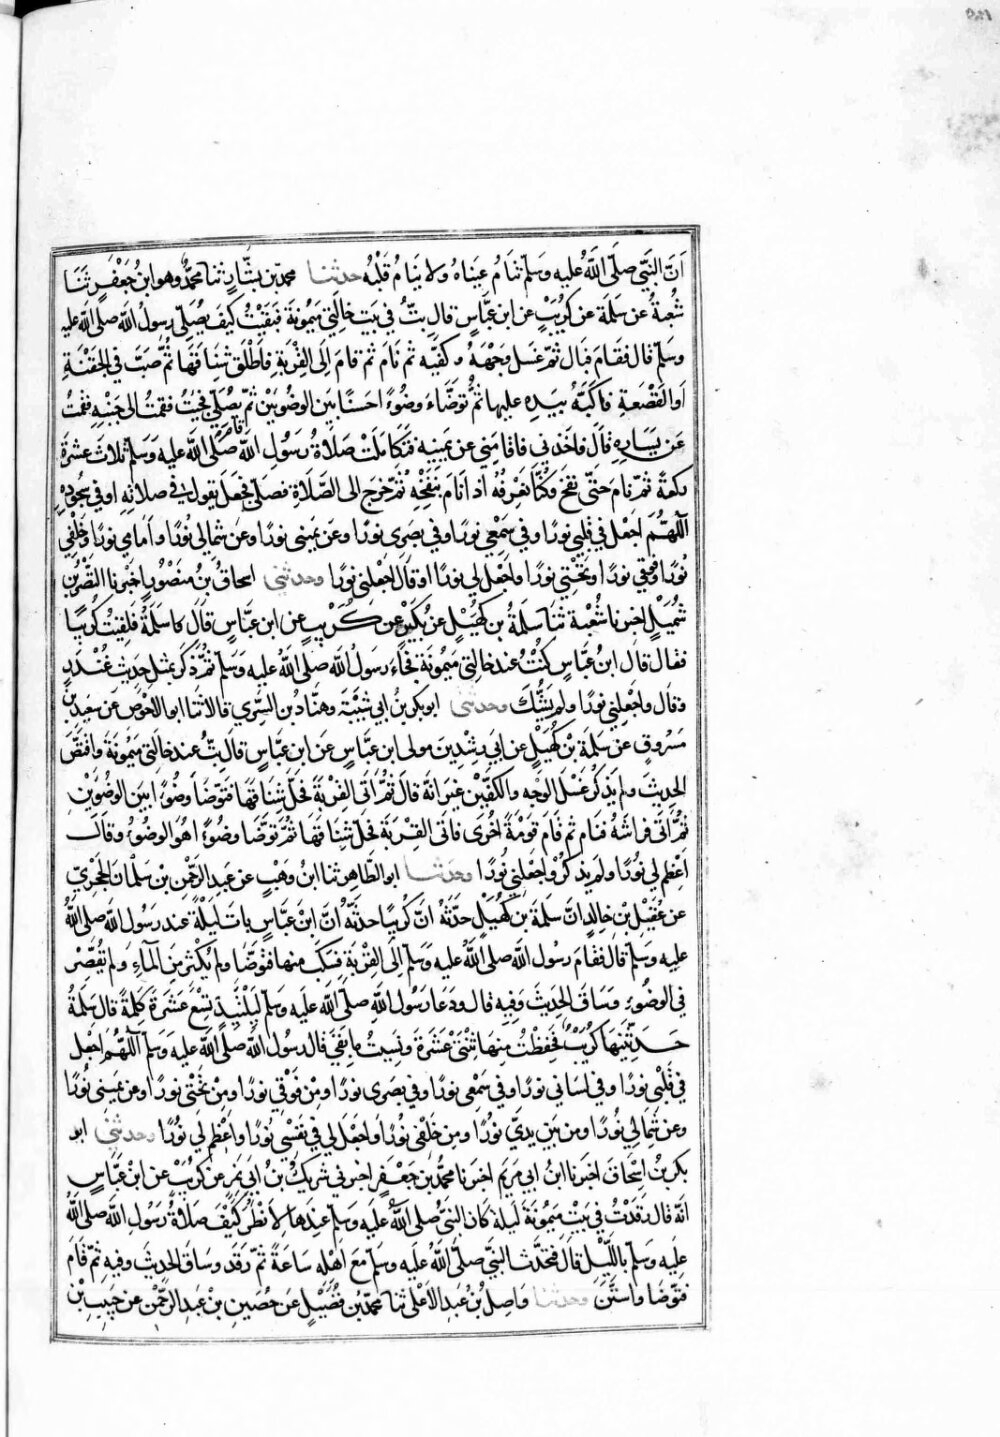 أنّ النبي صلى الله عليه وسلم تنام عيناه ولا ينام قلبه حدثنا محمد بن بشار ثنا محمد وهو ابن جعفر ثنا
شعبة عن سلمة عن كريب عن ابن عباس قال بتّ في بيت خالتي ميمونة فبقيت كيف يصلي رسول الله صلى الله عليه
وسلم قال فقام فبال ثم غسل وجهه وكفيه ثم نام ثم قام إلى القربة فأطلق شناقها ثم صبّ في الجفنة
أو القصعة فأكبّه بيده عليها ثم توضأ وضوءًا حسنًا بين الوضوين ثم قام يصلي فجيت فقمت الى جنبه فقمت
عن يساره قال فأخذني فأقامني عن يمينه فتكاملت صلاة رسول الله صلى الله عليه وسلم ثلاث عشرة
ركعة ثم نام حتى نفخ وكنا نعرفه اذا نام بنفخه ثم خرج الى الصلاة فصلى فجعل يقول في صلاته او في سجوده
اللهم اجعل في قلبي نورًا وفي سمعي نورًا وفي بصري نورًا وعن يميني نورًا وعن شمالي نورًا وأمامي نورًا وخلفي
نورًا وفوقي نورًا وتحتي نورًا واجعل لي نورًا او قال اجعلني نورًا وحدثني اسحاق بن منصور اخبرنا النضر بن
شميل اخبرنا شعبة ثنا سلمة بن كهيل عن بكير عن كريب عن ابن عباس قال سلمة فلقيت كريبًا
فقال قال ابن عباس كنت عند خالتي ميمونة فجاء رسول الله صلى الله عليه وسلم ثم ذكر بمثل حديث غندر
وقال واجعلني نورًا ولم يشك وحدثني ابو بكر بن ابي شيبة وهناد بن السري قالا ثنا ابو الاحوص عن سعيد بن
مسروق عن سلمة بن كهيل عن ابي رشدين مولى ابن عباس عن ابن عباس قال بت عند خالتي ميمونة واقتص
الحديث ولم يذكر غسل الوجه والكفين غير انه قال ثم أتى القربة فحل شناقها فتوضأ وضوءًا بين الوضوين
ثم أتى فراشه فنام ثم قام قومة أخرى فاتى القربة فحل شناقها ثم توضا وضوءًا هو الوضوء وقال
أعظم لي نورًا ولم يذكر واجعلني نورًا وحدثنا ابو الطاهر ثنا ابن وهب عن عبد الرحمن بن سلمان الحجري
عن عقيل بن خالد انّ سلمة بن كهيل حدثه انّ كريبًا حدثه انّ ابن عباس بات ليلة عند رسول الله صلى الله
عليه وسلم قال فقام رسول الله صلى الله عليه وسلم إلى القربة فسكب منها فتوضا ولم يكثر من الماء ولم يقصر
في الوضوء وساق الحديث وفيه قال ودعا رسول الله صلى الله عليه وسلم ليلتئذ تسع عشرة كلمة قال سلمة
حدثنيها كريب فحفظت منها ثنتي عشرة ونسيت ما بقي قال رسول الله صلى الله عليه وسلم اللهم اجعل
في قلبي نورًا وفي لساني نورًا وفي سمعي نورًا وفي بصري نورًا ومن فوقي نورًا ومن تحتي نورًا وعن يميني نورًا
وعن شمالي نورًا ومن بين يديّ نورًا ومن خلفي نورًا واجعل لي في نفسي نورًا وأعظم لي نورًا وحدثني ابو
بكر بن اسحاق اخبرنا ابن ابي مريم اخبرنا محمد بن جعفر اخبرني شريك بن ابي نمر عن كريب عن ابن عباس
انّه قال رقدت في بيت ميمونة ليلة كان النبي صلى الله عليه وسلم عندها لأنظر كيف صلاة رسول الله صلى الله
عليه وسلم بالليل قال فتحدّث النبي صلى الله عليه وسلم مع أهله ساعة ثم رقد وساق الحديث وفيه ثم قام
فتوضا واستنّ وحدثنا واصل بن عبد الأعلى ثنا محمد بن فضيل عن حصين بن عبد الرحمن عن حبيب بن